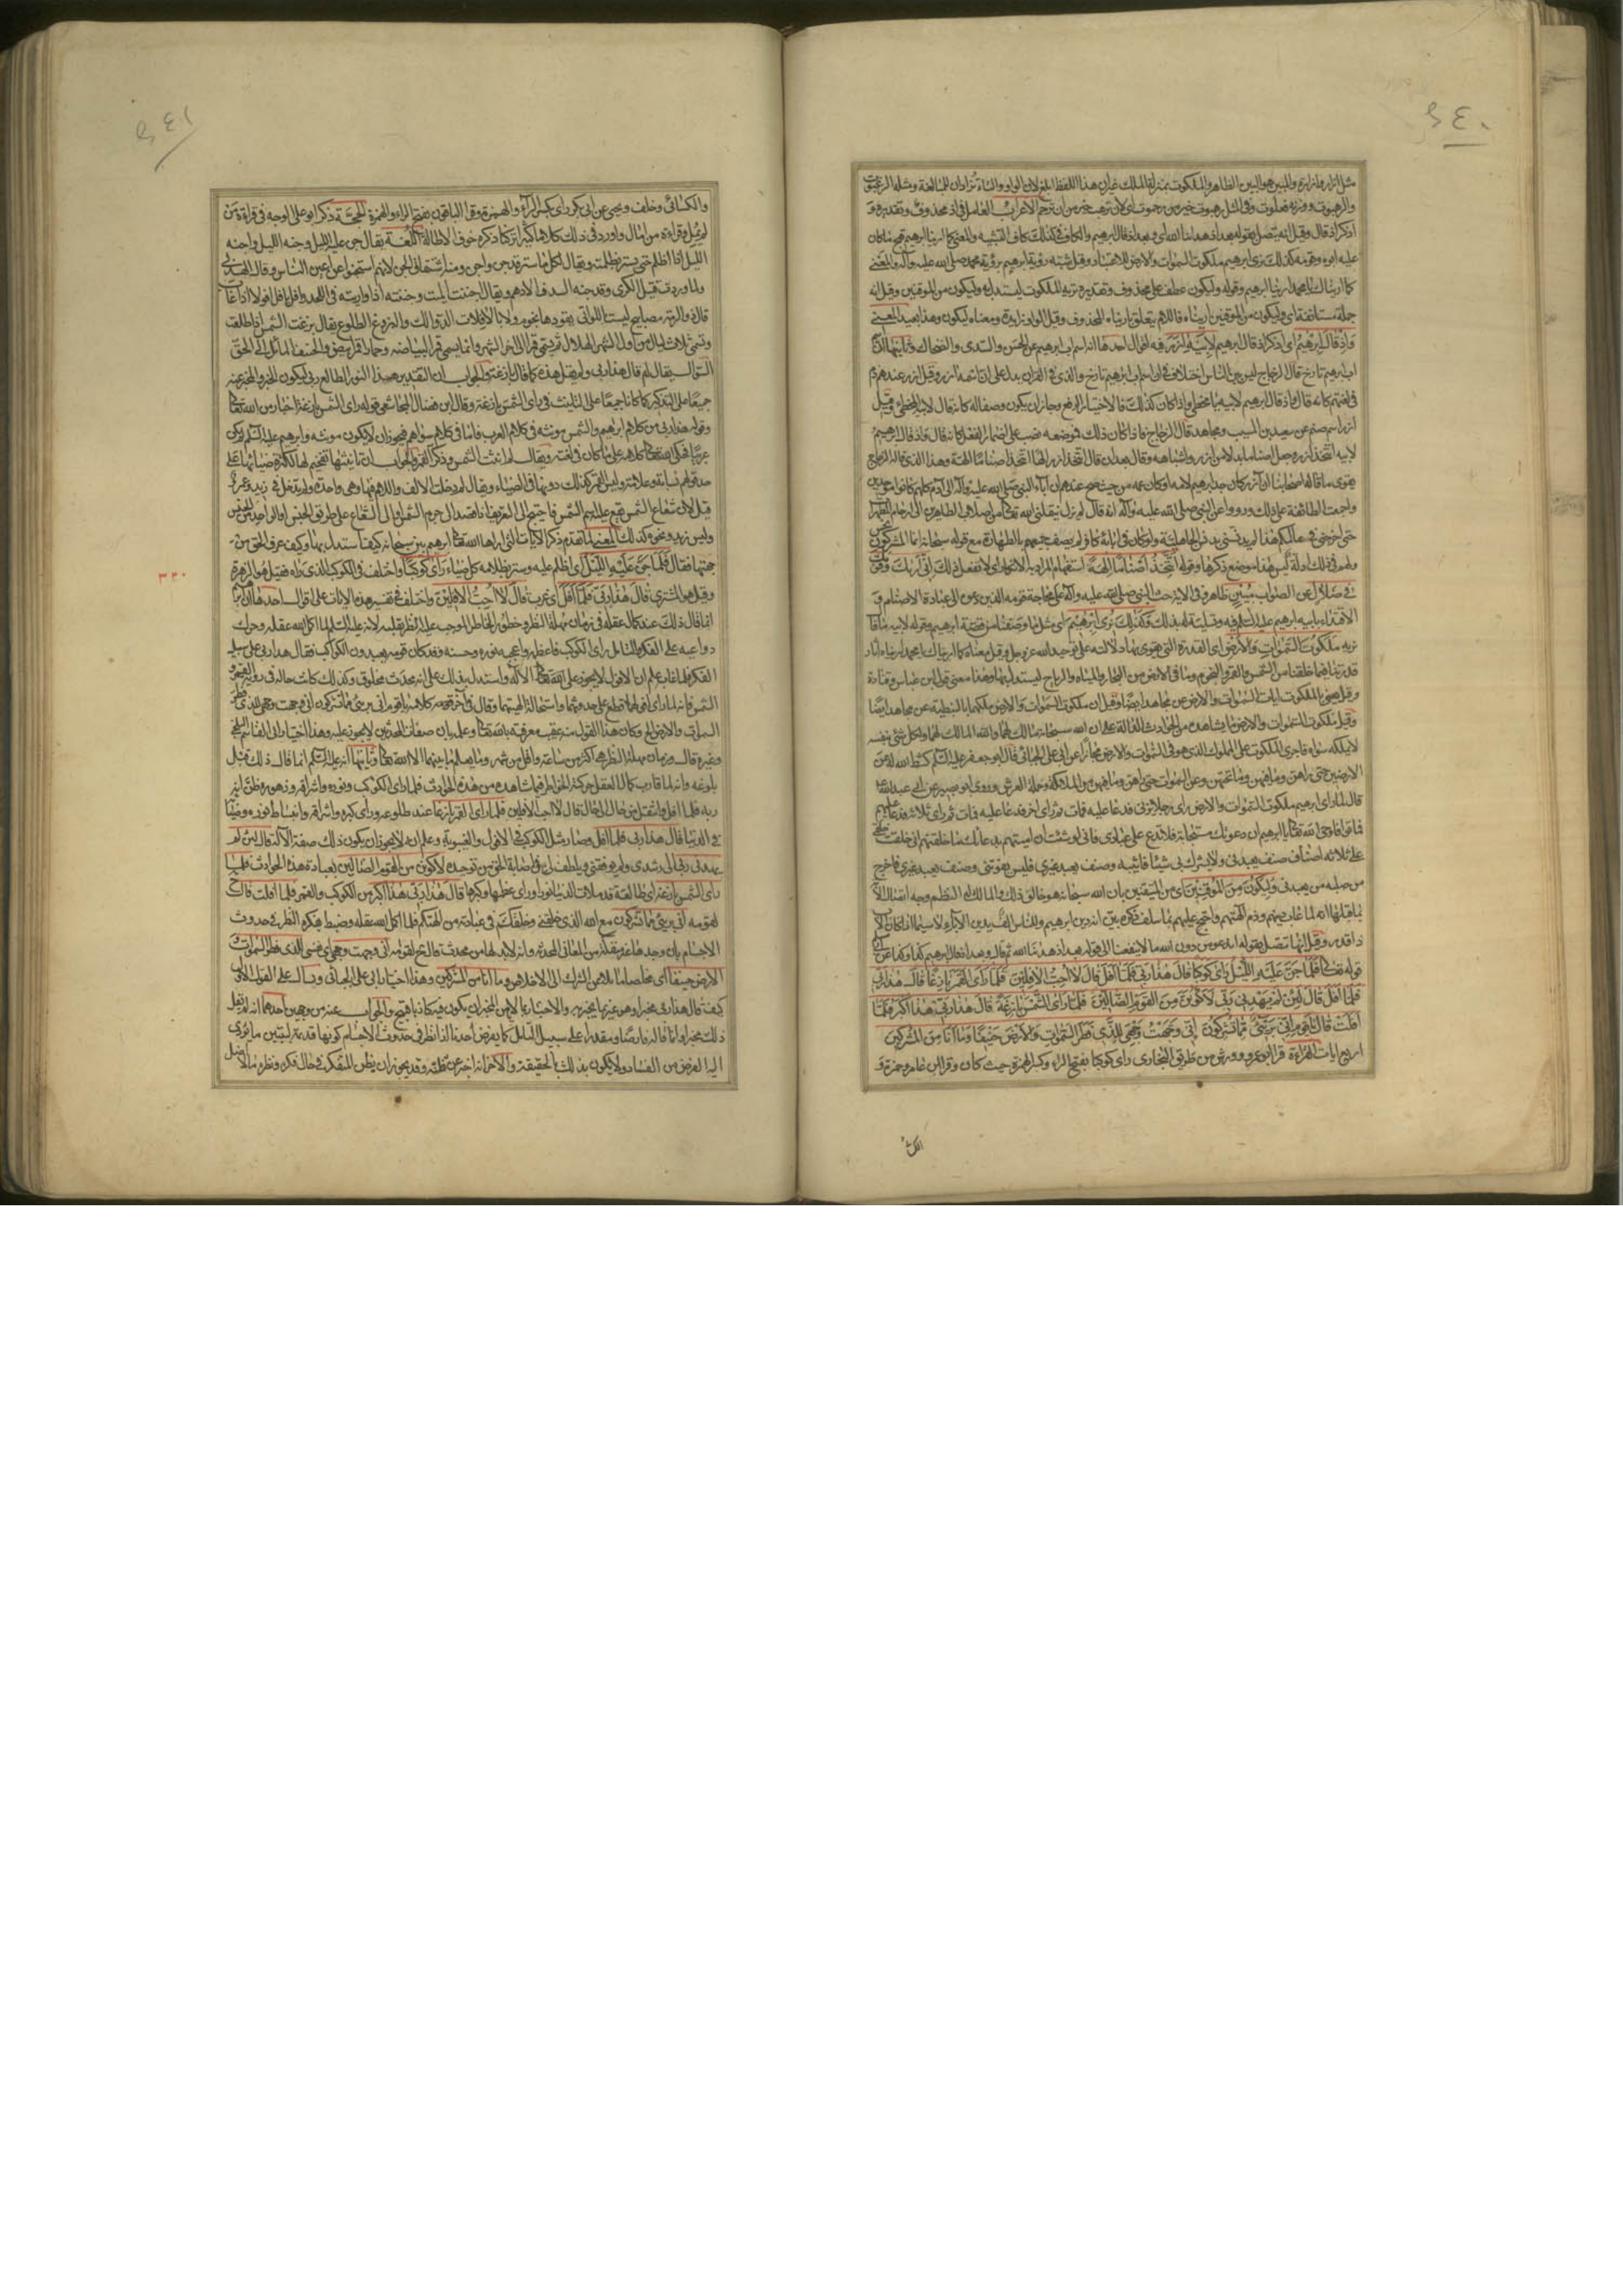 ٢٤٠
مثل ازار وازرة والمبين هو البين الظاهر والملكوت بمنزلة الملك غير ان هذا اللفظ ابلغ لان الواو والتاء تزادان للمبالغة ومثله الرغبوت
والرهبوت ووزنه فعلوت وفي المثل رهبوت خير من رحموت اي لان ترهب خير من ان ترحم الاعراب العامل في اذ محذوف وتقديره و
اذكر اذ قال وقيل انه يتصل بقوله بعد اذ هدانا الله اي وبعد اذ قال ابرهيم والكاف في كذلك كاف التشبيه والمعنى كما ارينا ابرهيم قبح ما كان
عليه ابوه وقومه كذلك نري ابرهيم ملكوت السموات والارض للاعتبار وقيل شبه رؤية ابرهيم برؤية محمد صلى الله عليه وآله والمعنى
كما اريناك يا محمد ارينا ابرهيم وقوله وليكون عطف على محذوف وتقديره نريه الملكوت ليستدل به وليكون من الموقنين وقيل انه
جملة مستانفة اي وليكون من الموقنين اريناه فاللام يتعلق باريناه المحذوف وقيل الواو زايدة ومعناه ليكون وهذا بعيد المعنى
وَاِذْ قَالَ اِبْرٰهِيمُ اي اذكر اذ قال ابرهيم لِاَبِيهِ اٰزَرَ فيه اقوال احدها انه اسم اب ابرهيم عن الحسن والسدي والضحاك وثانيها ان اسم
اب ابرهيم تارخ قال الزجاج ليس بين الناس اختلاف في ان اسم اب ابرهيم تارخ والذي في القران يدل على ان اسمه ازر وقيل ازر عندهم ذم
في لغتهم كانه قال واذ قال ابرهيم لابيه يا مخطي واذا كان كذلك فالاختيار الرفع وجاز ان يكون وصفا له كانه قال لابيه المخطي وقيل
ازر اسم صنم عن سعيد بن المسيب ومجاهد قال الزجاج فاذا كان ذلك فموضعه نصب على اضمار الفعل كانه قال واذ قال ابرهيم
لابيه اتتخذ ازر وجعل اصناما بدلا من ازر واشباهه وقال بعد ان قال اتتخذ ازر الها اتتخذ اصناما الهة وهذا الذي قاله الزجاج
يقوي ما قاله اصحابنا ان آزر كان جد ابرهيم لامه او كان عمه من حيث صح عندهم ان آباء النبي صلى الله عليه وآله الى آدم كلهم كانوا موحدين
واجمعت الطائفة على ذلك ورووا عن النبي صلى الله عليه وآله انه قال لم يزل ينقلني الله تعالى من اصلاب الطاهرين الى ارحام المطهرات
حتى اخرجني في عالمكم هذا لم يدنسني بدنس الجاهلية ولو كان في ابائه كافر لم يصف جميعهم بالطهارة مع قوله سبحانه انما المشركون نجس
ولهم في ذلك ادلة ليس هذا موضع ذكرها وقوله اَتَتَّخِذُ اَصْنَامًا اٰلِهَةً استفهام المراد به الانكار اي لا تفعل ذلك اِنِّي اَرٰيكَ وَقَوْمَكَ
فِي ضَلَالٍ عن الصواب مُبِينٍ ظاهر وفي الاية حث للنبي صلى الله عليه وآله على محاجة قومه الذين دعوه الى عبادة الاصنام و
الاقتداء بابيه ابرهيم عليه السلم فيه وتسلية له بذلك وَكَذٰلِكَ نُرِي اِبْرٰهِيمَ اي مثل ما وصفنا من قصة ابرهيم وقوله لابيه ما قال
نريه مَلَكُوتَ السَّمٰوَاتِ وَالْاَرْضِ اي القدرة التي تقوى بها دلالته على توحيد الله عز وجل وقيل معناه كما اريناك يا محمد اريناه اثار
قدرتنا فيما خلقنا من الشمس والقمر والنجوم وما في الارض من البحار والمياه والرياح ليستدل بها وهذا معنى قول ابن عباس وقتادة
وقيل يعني بالملكوت ايات السموات والارض عن مجاهد ايضا وقيل ان ملكوت السموات والارض ملكهما بالنبطية عن مجاهد ايضا
وقيل ملكوت السموات والارض ما يشاهده من الحوادث الدالة على ان الله سبحانه مالك لهما والله المالك لهما ولكل شئ بنفسه
لا يملكه سواه فاجرى الملكوت على المملوك الذي هو في السموات والارض مجازا عن ابي علي الجبائي قال ابو جعفر عليه السلم كشط الله له عن
الارضين حتى راهن وما فيهن وما تحتهن وعن السموات حتى راهن وما فيهن من الملائكة وحملة العرش وروى ابو بصير عن ابي عبد الله ع
قال لما راى ابرهيم ملكوت السموات والارض راى رجلا يزني فدعا عليه فمات ثم راى اخر فدعا عليه فمات ثم راى ثلاثة فدعا عليهم
فماتوا فاوحى الله تعالى يا ابرهيم ان دعوتك مستجابة فلا تدع على عبادي فاني لو شئت ان اميتهم بدعائك ما خلقتهم اني خلقت خلقي
على ثلاثة اصناف صنف يعبدني ولا يشرك بي شيئا فاثيبه وصنف يعبد غيري فليس يفوتني وصنف يعبد غيري فاخرج
من صلبه من يعبدني وَلِيَكُونَ مِنَ الْمُوقِنِينَ اي من المتيقنين بان الله سبحانه هو خالق ذلك والمالك له النظم وجه اتصال الاية
بما قبلها انه لما عاب دينهم وذم الهتهم واحتج عليهم بما سلف ذكره بين انه دين ابرهيم وللناس الف بدين الآباء لا سيما اذا كان الاب
ذا قدر وقيل انها تتصل بقوله اندعوا من دون الله ما لا ينفعنا الى قوله بعد اذ هدينا الله ثم قال وهذا فعل ابرهيم كذا وكذا عن ابي مسلم
قوله تعالى فَلَمَّا جَنَّ عَلَيْهِ اللَّيْلُ رَاٰى كَوْكَبًا قَالَ هٰذَا رَبِّي فَلَمَّا اَفَلَ قَالَ لَا اُحِبُّ الْاٰفِلِينَ فَلَمَّا رَاَى الْقَمَرَ بَازِغًا قَالَ هٰذَا رَبِّي
فَلَمَّا اَفَلَ قَالَ لَئِنْ لَمْ يَهْدِنِي رَبِّي لَاَكُونَنَّ مِنَ الْقَوْمِ الضَّالِّينَ فَلَمَّا رَاَى الشَّمْسَ بَازِغَةً قَالَ هٰذَا رَبِّي هٰذَا اَكْبَرُ فَلَمَّا
اَفَلَتْ قَالَ يَا قَوْمِ اِنِّي بَرِئٌ مِمَّا تُشْرِكُونَ اِنِّي وَجَّهْتُ وَجْهِيَ لِلَّذِي فَطَرَ السَّمٰوَاتِ وَالْاَرْضَ حَنِيفًا وَمَا اَنَا مِنَ الْمُشْرِكِينَ
اربع ايات القراءة قرا ابو عمرو وورش من طريق البخاري راى كوكبا بفتح الراء وكسر الهمزة حيث كان وقرا ابن عامر وحمزة و
الكسائي
٢٤١
والكسائي وخلف ويحيى عن ابي بكر راى بكسر الراء والهمزة وقرا الباقون بفتح الراء والهمزة الحجة ذكر ابو علي الوجه في قراءة من
لم يمل وقراءة من امال واورد في ذلك كلاما كثيرا تركنا ذكره خوف الاطالة اللغة يقال جن عليه الليل وجنه الليل واجنه
الليل اذا اظلم حتى يستر بظلمته ويقال لكل ما ستر قد جن واجن ومنه اشتقاق الجن لانهم استجنوا عن اعين الناس وقال الهذلي
وماء وردت قبيل الكرى وقد جنه السدف الادهم ويقال اجننت الميت وجننته اذا واريته في اللحد وافل يافل افولا اذا غاب
قال ذو الرمة مصابيح ليست باللواتي يقودها نجوم ولا بالافلات الدوالك والبزوغ الطلوع يقال بزغت الشمس اذا طلعت
وتسمى ثلاث ليال من اول الشهر الهلال ثم يسمى قمرا الى اخر الشهر وانما يسمى قمرا لبياضه وحمار اقمر ابيض والحنيف المائل الى الحق
السؤال يقال لم قال هذا ربي ولم يقل هذه كما قال بازغة والجواب ان التقدير هذا النور الطالع ربي ليكون الخبر والمخبر عنه
جميعا على التذكير كما كانا جميعا على التانيث في راى الشمس بازغة وقال ابن فضال المجاشعي قوله راى الشمس بازغة اخبار من الله تعالى
وقوله هذا ربي من كلام ابرهيم والشمس مونثة في كلام العرب فاما في كلام سواهم فيجوز ان لا يكون مونثة وابرهيم عليه السلم لم يكن
عربيا فحكى الله تعالى كلامه على ما كان في لغته ويقال لم انث الشمس وذكر القمر والجواب ان تانيثها تفخيم لها لكثرة ضيائها على
حد قولهم نسابة وعلامة وليس القمر كذلك دونها في الضياء ويقال لم دخلت الالف واللام فيها وهي واحدة ولم تدخل في زيد وعمرو
قيل لان شعاع الشمس يقع عليه اسم الشمس فاحتيج الى التعريف اذا قصد الى جرم الشمس او الى الشعاع على طريق الجنس او الواحد من الجنس
وليس زيد ونحوه كذلك المعنى لما تقدم ذكر الايات التي اراها الله تعالى ابرهيم بين سبحانه كيف استدل بها وكيف عرف الحق من
جهتها فقال فَلَمَّا جَنَّ عَلَيْهِ اللَّيْلُ اي اظلم عليه وستر بظلامه كل ضياء رَاٰى كَوْكَبًا واختلف في الكوكب الذي راه فقيل هو الزهرة
وقيل هو المشتري قَالَ هٰذَا رَبِّي فَلَمَّا اَفَلَ اي غرب قَالَ لَا اُحِبُّ الْاٰفِلِينَ واختلف في تفسير هذه الايات على اقوال احدها ان ابرهيم
انما قال ذلك عند كمال عقله في زمان مهلة النظر وخطور الخاطر الموجب عليه النظر بقلبه لانه عليه السلم لما اكمل الله عقله وحرك
دواعيه على الفكر والتامل راى الكوكب فاعظمه واعجبه نوره وحسنه وقد كان قومه يعبدون الكواكب فقال هذا ربي على سبيل
الفكر فلما غاب علم ان الافول لا يجوز على الله تعالى الاله واستدل بذلك على انه محدث مخلوق وكذلك كانت حاله في رؤية القمر و
الشمس فانه لما راى افولهما قطع على حدوثهما واستحالة الهيتهما وقال في آخر كلامه يا قوم اني برئ مما تشركون اني وجهت وجهي للذي فطر
السموات والارض الخ وكان هذا القول منه عقيب معرفته بالله تعالى وعلمه بان صفات المحدثين لا يجوز عليه وهذا اختيار ابي القاسم البلخي
وغيره قال وزمان مهلة النظر هي اكثر من ساعة واقل من شهر وما يعلم ما بينهما الا الله تعالى وثانيها انه عليه السلم انما قال ذلك قبل
بلوغه وانه لما قارب كمال العقل حركته الخواطر فيما شاهده من هذه الحوادث فلما راى الكوكب ونوره واشراقه وزهوره ظن انه
ربه فلما افل وانتقل من حال الى حال قال لا احب الافلين فلما راى القمر بازغا عند طلوعه وراى كبره واشراقه وانبساط نوره وضياءه
في الدنيا قال هذا ربي فلما افل وصار مثل الكوكب في الافول والغيبوبة وعلم انه لا يجوز ان يكون ذلك صفة الاله قال لئن لم
يهدني ربي الى رشدي ولم يوفقني ويلطف لي في اصابة الحق من توحيده لاكونن من القوم الضالين بعبادة هذه الحوادث فلما
راى الشمس بازغة اي طالعة قد ملات الدنيا نورا وراى عظمها وكبرها قال هذا ربي هذا اكبر من الكوكب والقمر فلما افلت قال ح
لقومه اني برئ مما تشركون مع الله الذي خلقني وخلقكم في عبادته من الهتكم فلما اكمل الله عقله وضبط بفكره النظر في حدوث
الاجسام بان وجدها غير منفكة من المعاني المحدثة وانه لا بد لها من محدث قال ح لقومه اني وجهت وجهي اي نفسي للذي فطر السموات و
الارض حنيفا اي مخلصا مائلا عن الشرك الى الاخلاص وما انا من المشركين وهذا اختيار ابي علي الجبائي ويسال على القول الاول
كيف قال هذا ربي مخبرا وهو غير عالم بما يخبر به والاخبار بما لا يامن المخبر ان يكون فيه كاذبا قبيح والجواب عنه من وجهين احدهما انه لم يقل
ذلك مخبرا وانما قاله فارضا ومقدرا على سبيل التامل كما يفرض احدنا اذا نظر في حدوث الاجسام كونها قديمة ليتبين ما يؤدي
اليه الفرض من الفساد ولا يكون بذلك في الحقيقة والآخر انه اخبر عن ظنه وقد يجوز ان يظن المتفكر في حال فكره ونظره ما لا اصل
٣٣٠